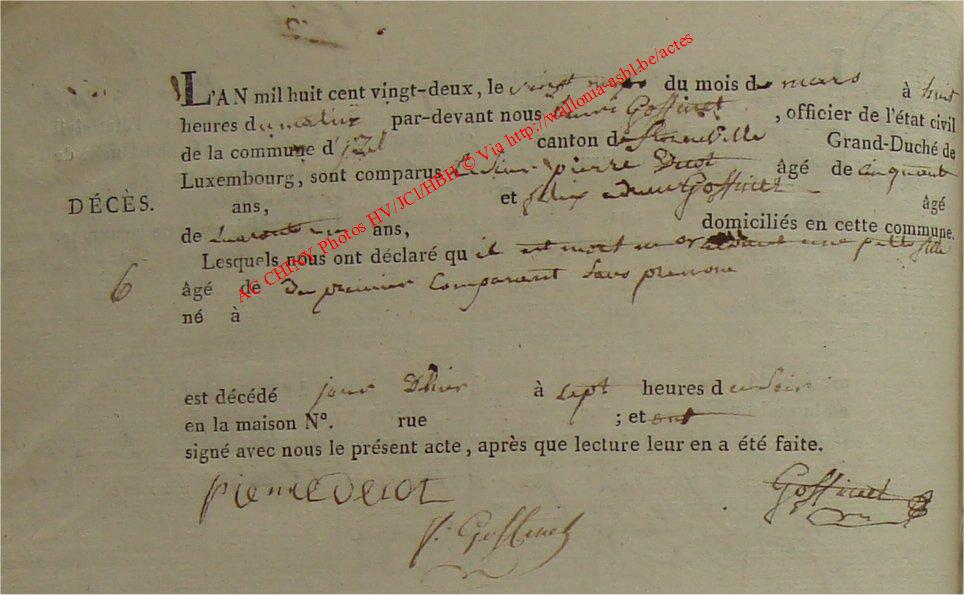 L'AN mil huit cent vingt-deux, le vingt du mois de mars à huit
heures du matin par-devant nous henri Goffinet, officier de l'état civil
de la commune d' canton de florenville Grand-Duché de
Luxembourg, sont comparus Le sieur pierre Decot âgé de cinquant
DÉCÈS. ans, et Goffinet âgé
de quarante ans, domiciliés en cette commune.
Lesquels nous ont déclaré qu'il est mort une petite fille
6 âgé de du premier Comparant sans prenom
né à
est décédé jour d'hier à sept heures du soir
en la maison N°. rue ; et ont
signé avec nous le présent acte, après que lecture leur en a été faite.
pierre decot Goffinet
Goffinet
AC CHINY Photos HV/JCl/HBH © Via http://wallonia-asbl.be/actes